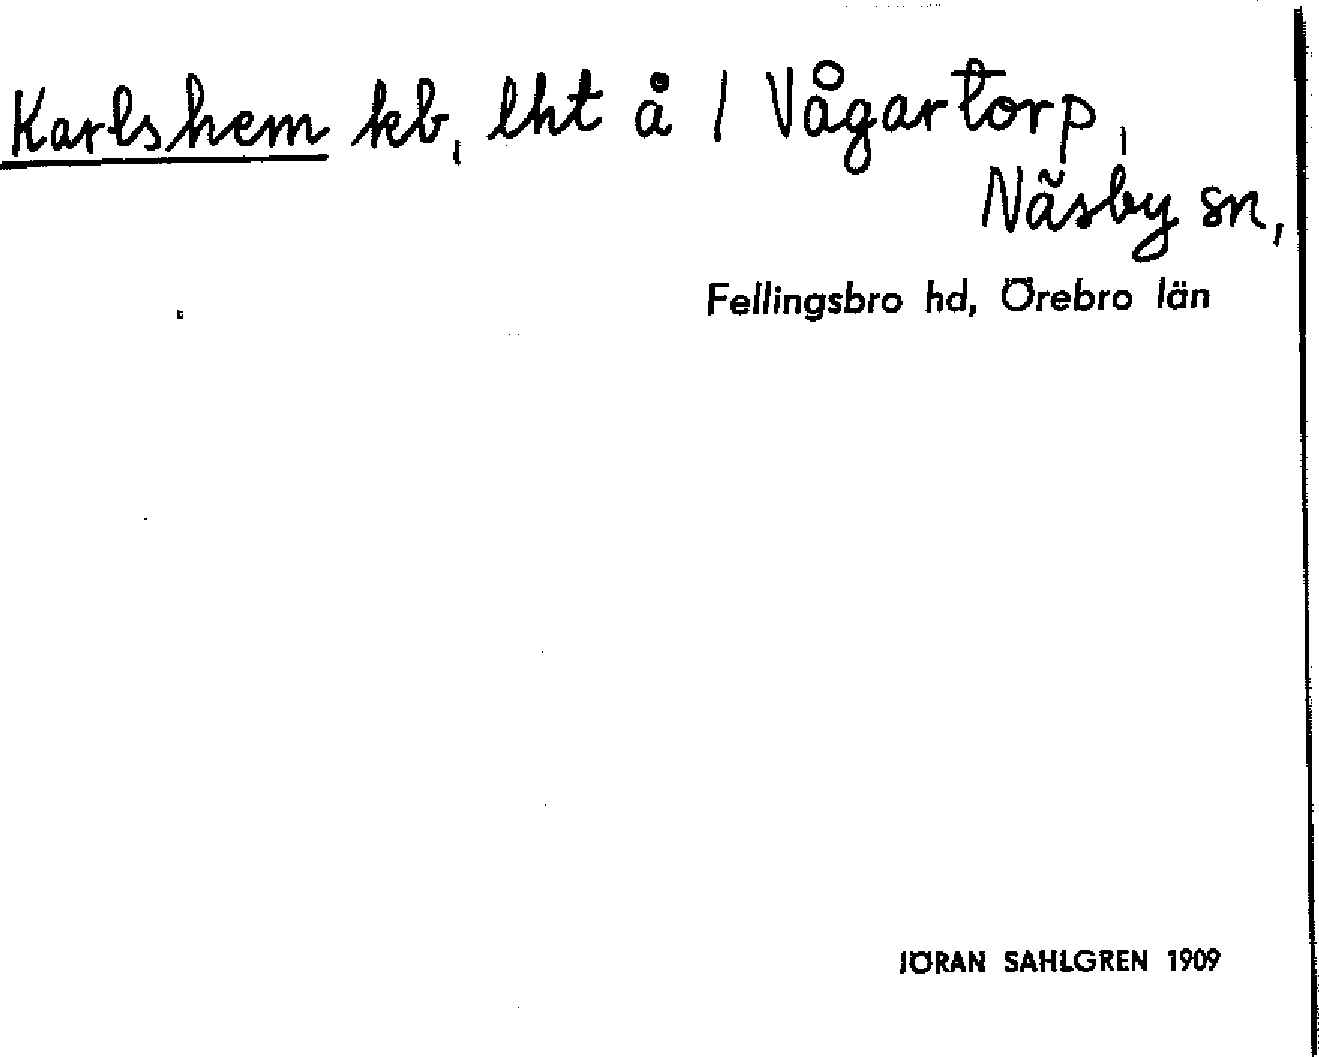 Karlshem kb, lht å / Vågartorp,
Näsby sn,
Fellingsbro hd, Örebro län
JÖRAN SAHLGREN 1909